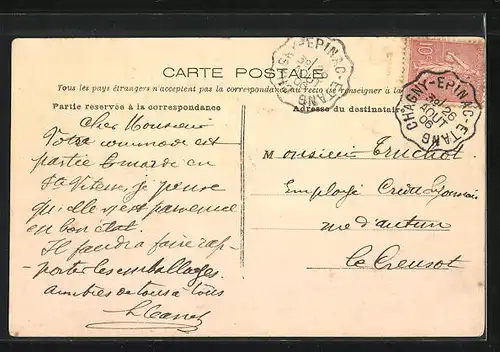 CARTE POSTALE
Tous les pays étrangers n'acceptent pas la correspondance au recto (se renseigner à la
Partie reservée à la correspondance
Adresse du destinataire
CHAGNY-EPINAC-ETANG
26
AOUT
05
CHAGNY-EPINAC-ETANG
26
AOUT
05
10
Cher Monsieur
Votre commode est
partie lo mardi en
, je pense
qu'elle vous est parvenue
en bon état.
Il faudra faire rap-
porter les emballages.
amitiés de tous à tous
Monsieur Truchot
Employé Crédit Lyonnais
rue d'autun
le Creusot